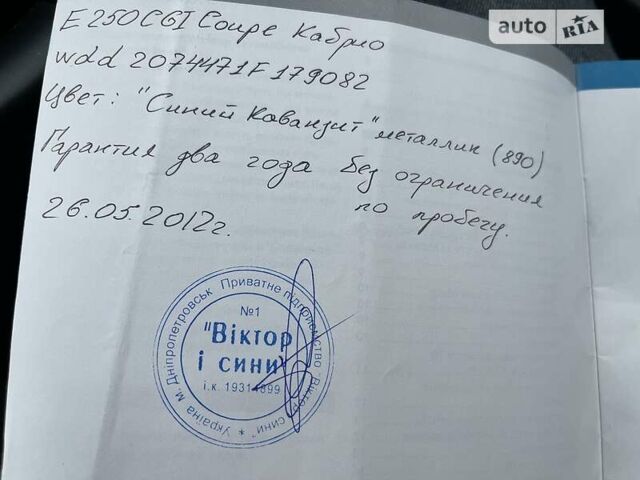 auto RIA
E250CGI Coupe Кабрио
wdd 2074471F179082
Цвет: "Синий Кованзит" металлик (890)
Гарантия два года без ограничения
по пробегу.
26.05.2012г.
Україна м. Дніпропетровськ Приватне підприємство "Віктор і сини" *
№1
"Віктор
і сини"